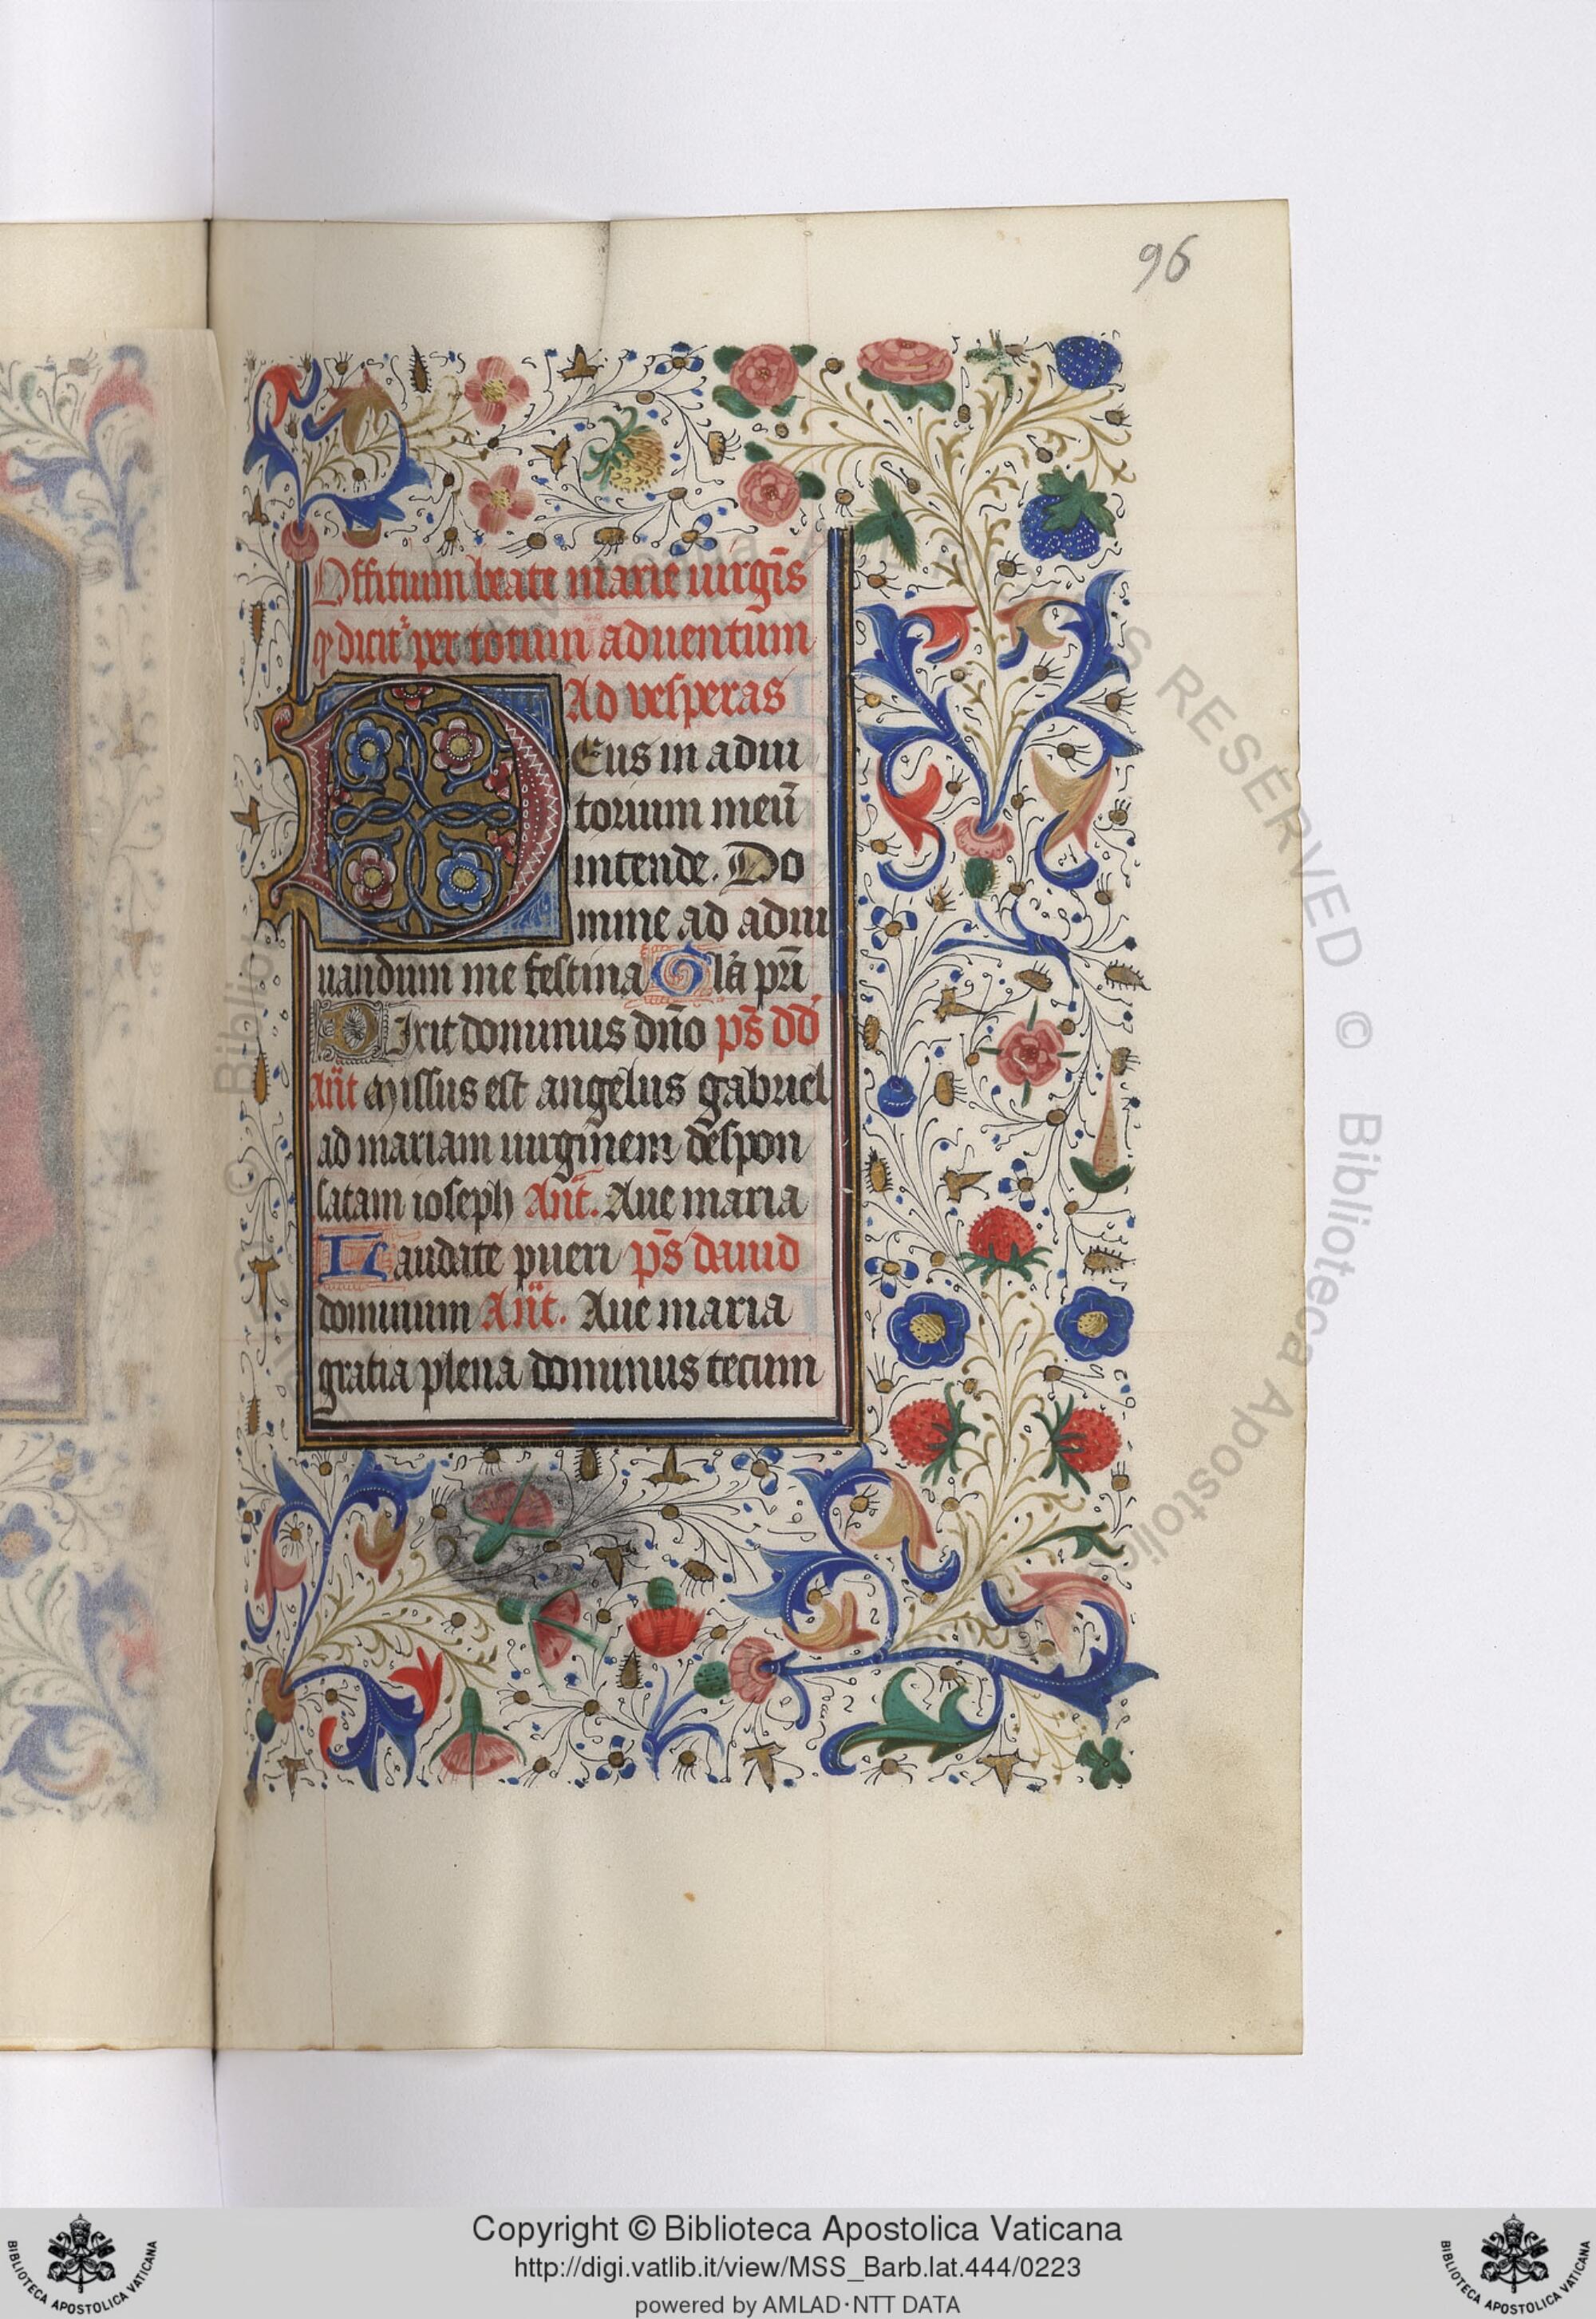 96
Offitium beate marie uirgīs
q̄ dicit᷑ per totum aduentum
Ad vesperas
DEus in adiu
torium meū
intende. Do
mine ad adiu
uandum me festina Gła pr̄i
Dixit dominus dn̄o ps̄ dd̄
An̄t Missus est angelus gabriel
ad mariam uirginem despon
satam ioseph An̄t. Aue maria
Laudate pueri ps̄ dauid
dominum An̄t. Aue maria
gratia plena dominus tecum
RESERVED © Biblioteca Apostolica
© Bibliot
Copyright © Biblioteca Apostolica Vaticana
http://digi.vatlib.it/view/MSS_Barb.lat.444/0223
powered by AMLAD·NTT DATA
BIBLIOTECA APOSTOLICA VATICANA
BIBLIOTECA APOSTOLICA VATICANA